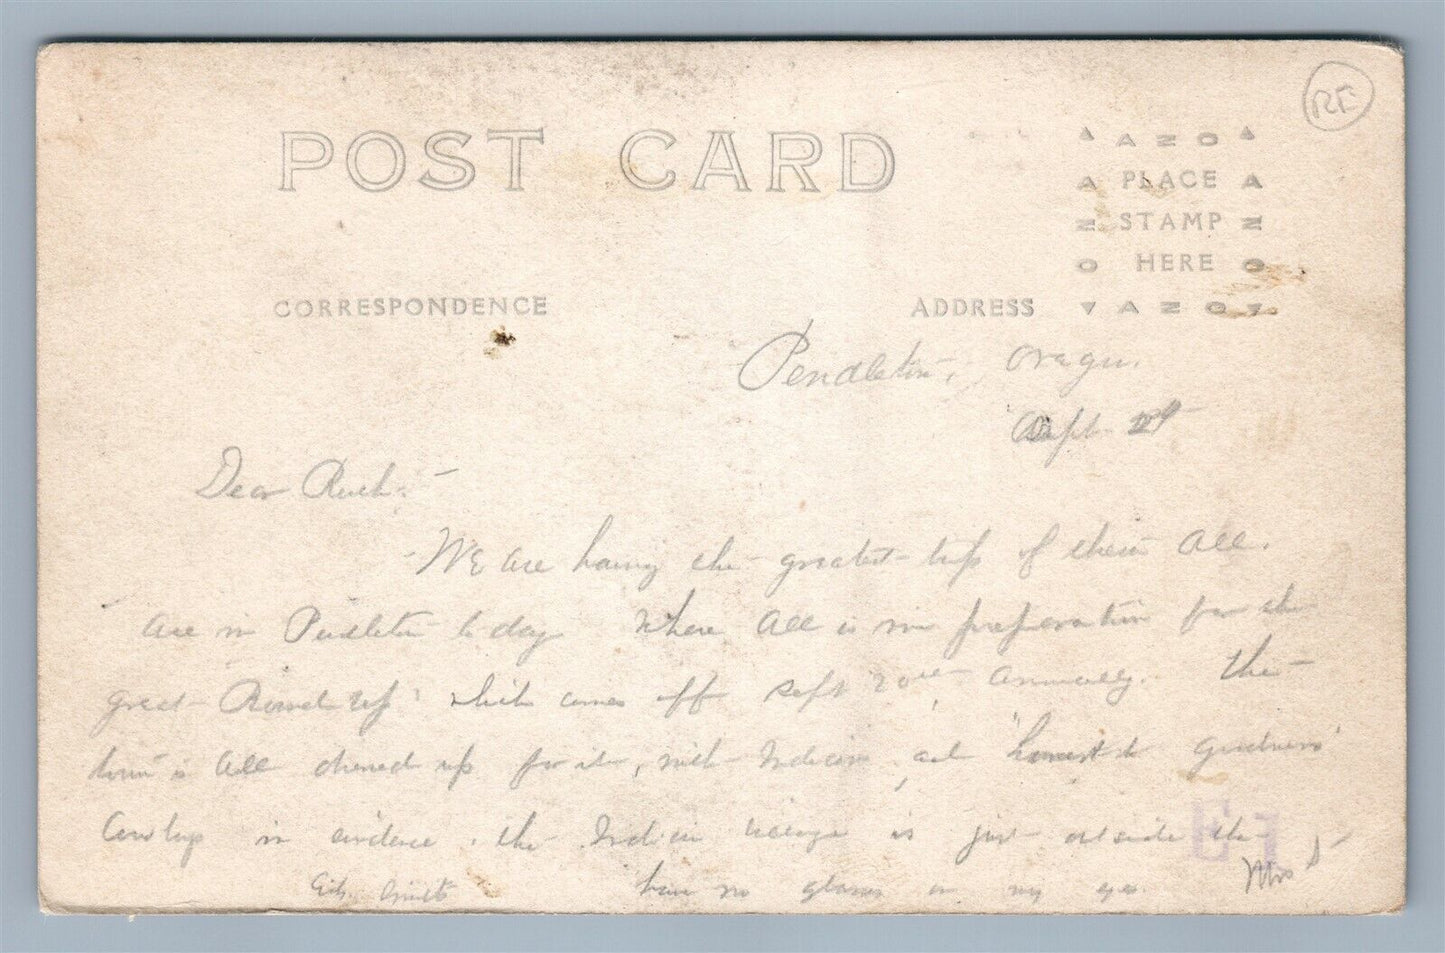 RE
POST CARD
AZO
PLACE
STAMP
HERE
AZO
CORRESPONDENCE
ADDRESS
Pendleton, Oregon.
Sept
Dear Ruth:-
We are having the greatest trip of them all.
are in Pendleton to day where all is in preparation for the
great Round up which comes off Sept 20th annually. The
town is all dressed up for it, with Indians and 'honest to goodness'
Cowboys in evidence. the Indian village is just outside the
City limits have no glasses on my eyes. Mrs D-